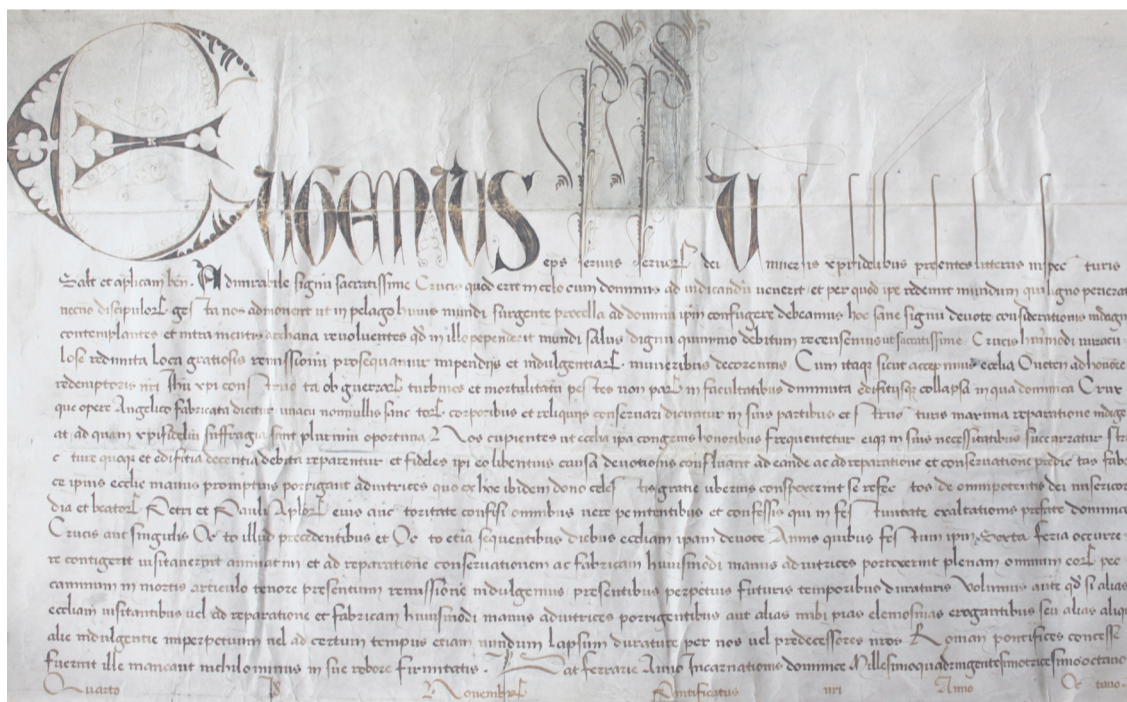 Eugenius
eps servus servorꝝ dei Universis xpifidelibus presentes litteras inspecturis
Salt et aplicam ben. Admirabile signũ sacratissime Crucis quod erit in celo cum dominus ad iudicandũ venerit et per quod ipe redemit mundum qui ligno perierat
necnõ discipulorꝝ gesta nos admonent ut in pelago huius mundi surgente procella ad domim ipm confugere debeamus hoc sane signũ devote considerationis indagin
contemplantes et intra mentium archana revoluentes qd in illo pependerit mundi salus dignũ quinimmo debitum recensemus ut sacratissime Crucis hmõi miracu
lose redimita loca gratiosis remissionũ prosequamur impendijs et indulgentiarꝝ muneribus decoremus Cum itaqȝ sicut accepimus ecclia Oueten ad honorẽ
redemptoris nri Jhũ xpi constructa ob guerrarꝝ turbines et mortalitatũ pestes non parꝝ in facultatibus diminuta edificijsqȝ collapsa in qua dominica Crux
que opere Angelico fabricata dicitur unacũ nonnullis sanctorꝝ corporibus et reliquijs conservari dicuntur in suis partibus et structuris maxima reparatione indige
at ad quam xpifideliũ suffragia sunt plurimũ oportuna Nos cupientes ut ecclia ipa congruis honoribus frequentetur eiqȝ in suis necessitatibus succurratur stru
cture quoqȝ et edifitia decentia debita reparentur et fideles ipi eo libentius causa devotionis confluant ad eandẽ ac ad reparationẽ et conservationẽ predictas fabri
ce ipius ecclie manus promptius porrigant adiutrices quo ex hoc ibidem dono celestis gratie uberius conspexerint se refectos de omnipotentis dei misericor
dia et beatorꝝ Petri et Pauli Aplorꝝ eius auctoritate confisi omnibus vere penitentibus et confessis qui in festivitate exaltationis prefate dominice
Crucis aut singulis Octo illud precedentibus et Octo etiã sequentibus diebus eccliam ipam devote Annis quibus festum ipm Sexta feria occurre
re contigerit visitaverint annuatim et ad reparationẽ conservationem ac fabricam huiusmodi manus adiutrices porrexerint plenam omnium eorꝝ pec
caminum in mortis articulo tenore presentium remissionẽ indulgemus presentibus perpetuis futuris temporibus duraturis Volumus autẽ qd si alias
eccliam visitantibus vel ad reparationẽ et fabricam huiusmodi manus adiutrices porrigentibus aut alias inibi pias elemosinas erogantibus seu alias aliqu
alie indulgentie imperpetuum vel ad certum tempus etiam nundum lapsum durature per nos vel predecessores nros Roman pontifices concesse
fuerint ille maneant nichilominus in sue robore firmitatis. Dat ferrarie Anno Incarnationis dominice Millesimoquadringentesimotricesimooctavo
Quarto Novembrꝝ Pontificatus nri Anno Octavo.